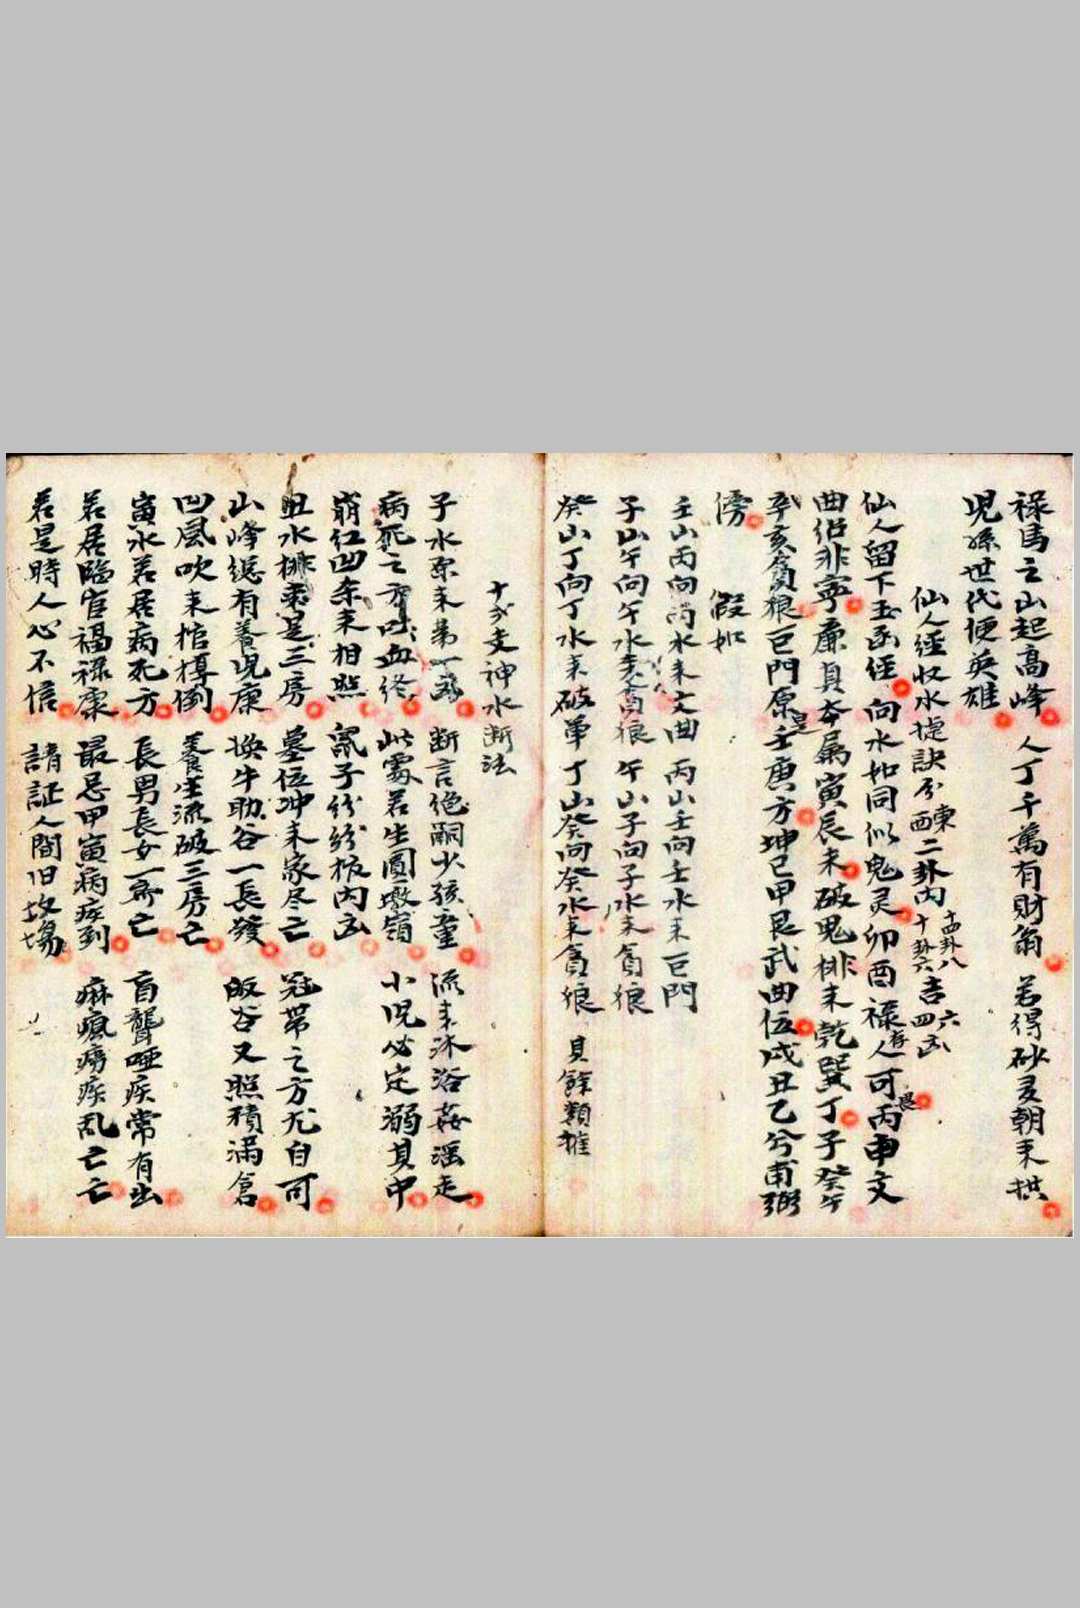 禄馬之山起高峰 人丁千萬有財翁 若得砂灵朝来拱
児孫世代便英雄
仙人經收水捷訣分東西二卦内十四卦八十卦六吉六四凶
仙人留下玉函經 向水如同似鬼灵 卯酉禄存人可丙申文
曲佋非寧 廉貞本属寅辰未 破鬼排来乾巽丁子癸午
辛亥貪狼巨門原是壬庚方坤巳甲艮武曲伍戌丑乙兮甫弼
傍 假如
壬山丙向丙水来文曲 丙山壬向壬水来巨門
子山午向午水来貪狼 午山子向子水来貪狼
癸山丁向丁水来破軍 丁山癸向癸水来貪狼 貝餘類推
十式支神水断法
子水原来第一 断言绝嗣少孩童 流来沐浴姦滛走
病死之方吐血终 此處若生圓墩嶺 小児必定溺其中
崩红凹来相照 鼠子纷纷板内凶
丑水排来是三房 墓位冲来家尽亡 冠带之方尤自可
山峰縂有養児康 换牛助谷一長發 畈谷又照積满倉
凹風吹来棺槨倒 養生流破三房亡
寅水若居病死方 長男長女一齐亡 盲聾啞疾常有出
若居臨官福禄康 最忌甲寅病疾到 麻瘋痨疾乱亡亡
若是時人心不信 請証人間旧故塲